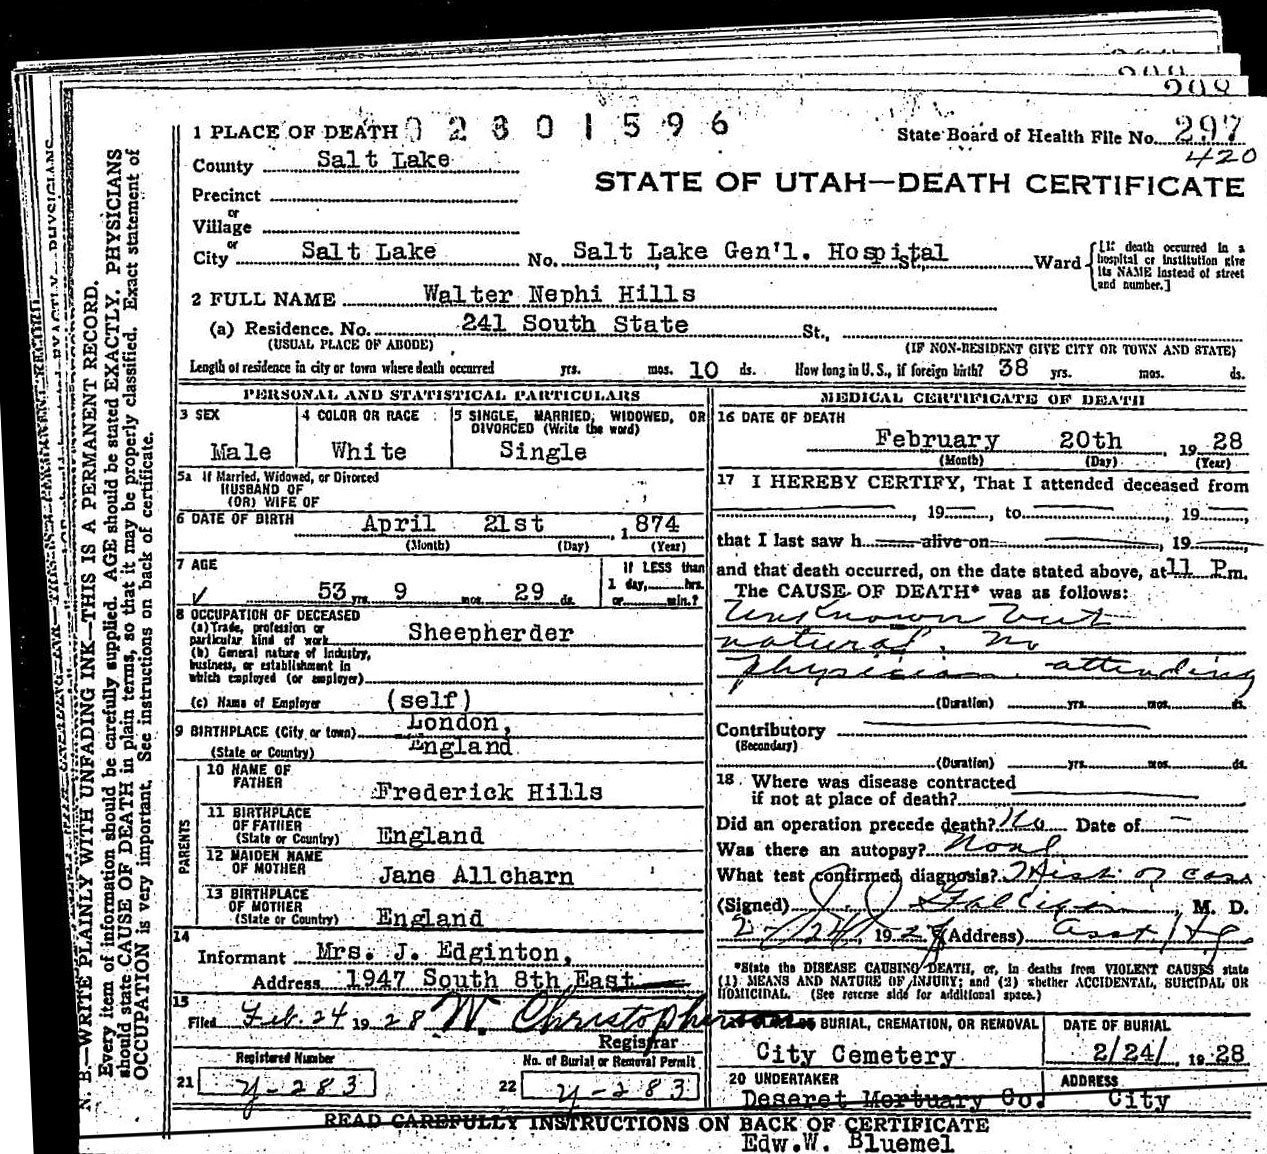 208
1 PLACE OF DEATH 0 2 8 0 1 5 9 6
State Board of Health File No. 297
420
County Salt Lake
STATE OF UTAH—DEATH CERTIFICATE
Precinct
or
Village
or
City Salt Lake No. Salt Lake Gen'l. Hospital St., Ward [If death occurred in a hospital or institution give its NAME instead of street and number.]
2 FULL NAME Walter Nephi Hills
(a) Residence. No. 241 South State St.,
(USUAL PLACE OF ABODE) (IF NON-RESIDENT GIVE CITY OR TOWN AND STATE)
Length of residence in city or town where death occurred yrs. mos. 10 ds. How long in U. S., if foreign birth? 38 yrs. mos. ds.
PERSONAL AND STATISTICAL PARTICULARS
3 SEX
Male
4 COLOR OR RACE
White
5 SINGLE, MARRIED, WIDOWED, OR DIVORCED (Write the word)
Single
5a If Married, Widowed, or Divorced
HUSBAND OF
(OR) WIFE OF
6 DATE OF BIRTH April 21st , 1874
(Month) (Day) (Year)
7 AGE
53 yrs. 9 mos. 29 ds.
If LESS than
1 day, hrs.
or min.?
8 OCCUPATION OF DECEASED
(a) Trade, profession or
particular kind of work Sheepherder
(b) General nature of Industry,
business, or establishment in
which employed (or employer)
(c) Name of Employer (self)
9 BIRTHPLACE (City or town) London,
(State or Country) England
PARENTS
10 NAME OF
FATHER Frederick Hills
11 BIRTHPLACE
OF FATHER
(State or Country) England
12 MAIDEN NAME
OF MOTHER Jane Allcharn
13 BIRTHPLACE
OF MOTHER
(State or Country) England
14
Informant Mrs. J. Edginton,
Address 1947 South 8th East
15
Filed Feb. 24 1928 W. Christopherson
Registrar
Registered Number
21 y-283
No. of Burial or Removal Permit
22 y-283
MEDICAL CERTIFICATE OF DEATH
16 DATE OF DEATH
February 20th , 19 28
(Month) (Day) (Year)
17 I HEREBY CERTIFY, That I attended deceased from
, 19 , to , 19 ,
that I last saw h alive on , 19
and that death occurred, on the date stated above, at 11 P.m.
The CAUSE OF DEATH* was as follows:
Unknown but
natural. No
physician attending
(Duration) yrs. mos. ds.
Contributory
(Secondary)
(Duration) yrs. mos. ds.
18 Where was disease contracted
if not at place of death?
Did an operation precede death? No Date of —
Was there an autopsy? None
What test confirmed diagnosis? Hist of case
(Signed) J. J. Galligan, M. D.
2/24, 1928 (Address) Asst
*State the DISEASE CAUSING DEATH, or, in deaths from VIOLENT CAUSES state
(1) MEANS AND NATURE OF INJURY; and (2) whether ACCIDENTAL, SUICIDAL OR
HOMICIDAL. (See reverse side for additional space.)
BURIAL, CREMATION, OR REMOVAL
City Cemetery
DATE OF BURIAL
2/24/ 19 28
20 UNDERTAKER
Deseret Mortuary Co.
ADDRESS
City
READ CAREFULLY INSTRUCTIONS ON BACK OF CERTIFICATE
Edw.W. Bluemel
N. B.—WRITE PLAINLY WITH UNFADING INK—THIS IS A PERMANENT RECORD.
Every item of information should be carefully supplied. AGE should be stated EXACTLY. PHYSICIANS
should state CAUSE OF DEATH in plain terms, so that it may be properly classified. Exact statement of
OCCUPATION is very important. See instructions on back of certificate.